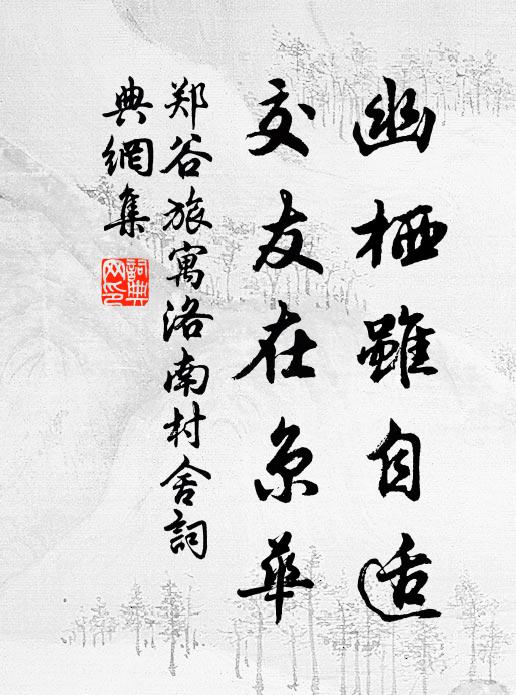 幽栖雖自适
交友在京華
郑谷旅寓洛南村舍詞
典網集
詞典
网印